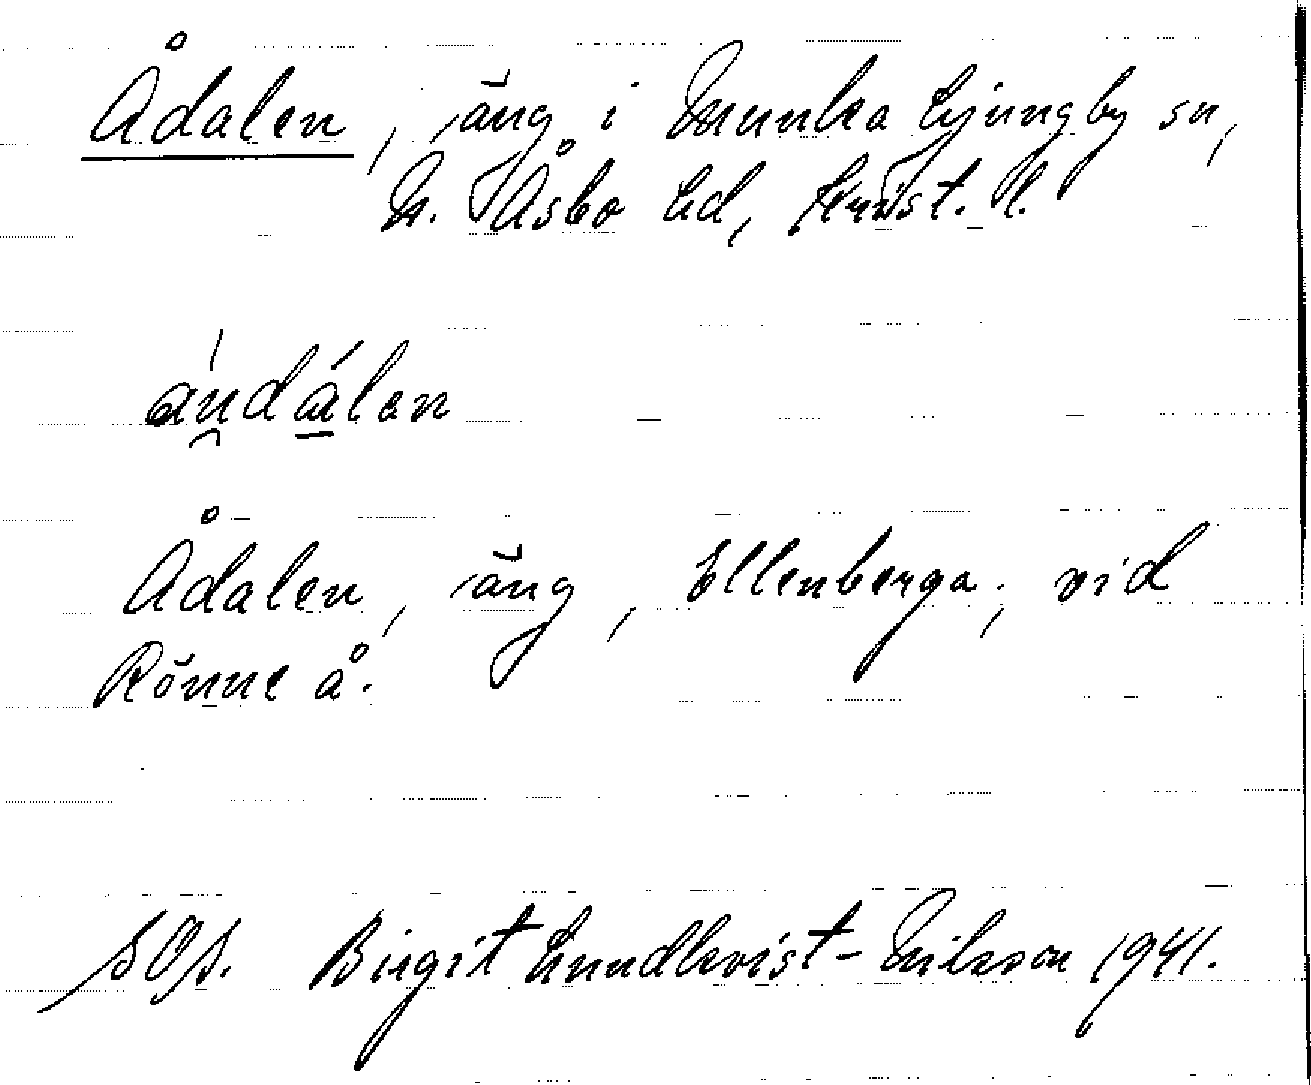 Ådalen, äng i Munka Ljungby sn,
N. Åsbo hd, Krist. l.
áu̯dálen
Ådalen, äng, Ellenberga, vid
Rönne å.
SOS. Birgit Lundkvist-Nilsson 1941.